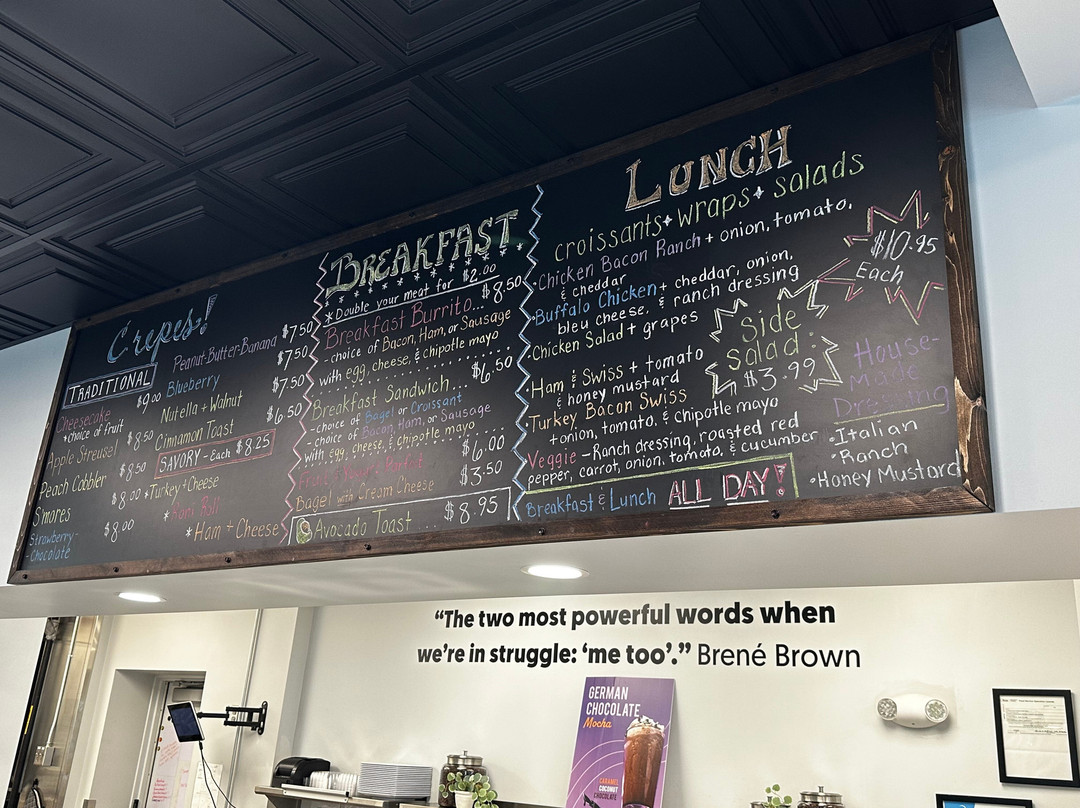 Crepes!
TRADITIONAL
Cheesecake
*choice of fruit
$9.00
Apple Streusel
$8.50
Peach Cobbler
$8.50
S'mores
$8.00
Strawberry-
-Chocolate
$8.00
Peanut-Butter-Banana
$7.50
Blueberry
$7.50
Nutella + Walnut
$7.50
Cinnamon Toast
$6.50
SAVORY - Each $8.25
*Turkey + Cheese
*Pizza Roll
*Ham + Cheese
BREAKFAST
*Double your meat for $2.00
Breakfast Burrito... $8.50
-choice of Bacon, Ham, or Sausage
with egg, cheese, & chipotle mayo
Breakfast Sandwich... $6.50
-choice of Bagel or Croissant
-choice of Bacon, Ham, or Sausage
with egg, cheese, & chipotle mayo
Fruit & Yogurt Parfait $6.00
Bagel with Cream Cheese $3.50
Avocado Toast... $8.95
LUNCH
croissants + wraps + salads
$10.95
Each
•Chicken Bacon Ranch + onion, tomato,
& cheddar
•Buffalo Chicken + cheddar, onion,
bleu cheese, & ranch dressing
•Chicken Salad + grapes
•Ham & Swiss + tomato
& honey mustard
Turkey Bacon Swiss
+onion, tomato, & chipotle mayo
Veggie - Ranch dressing, roasted red
pepper, carrot, onion, tomato, & cucumber
Side
Salad
$3.99
House-
Made
Dressing
•Italian
•Ranch
•Honey Mustard
Breakfast & Lunch ALL DAY!
“The two most powerful words when
we’re in struggle: ‘me too’.” Brené Brown
GERMAN
CHOCOLATE
Mocha
CARAMEL
COCONUT
CHOCOLATE